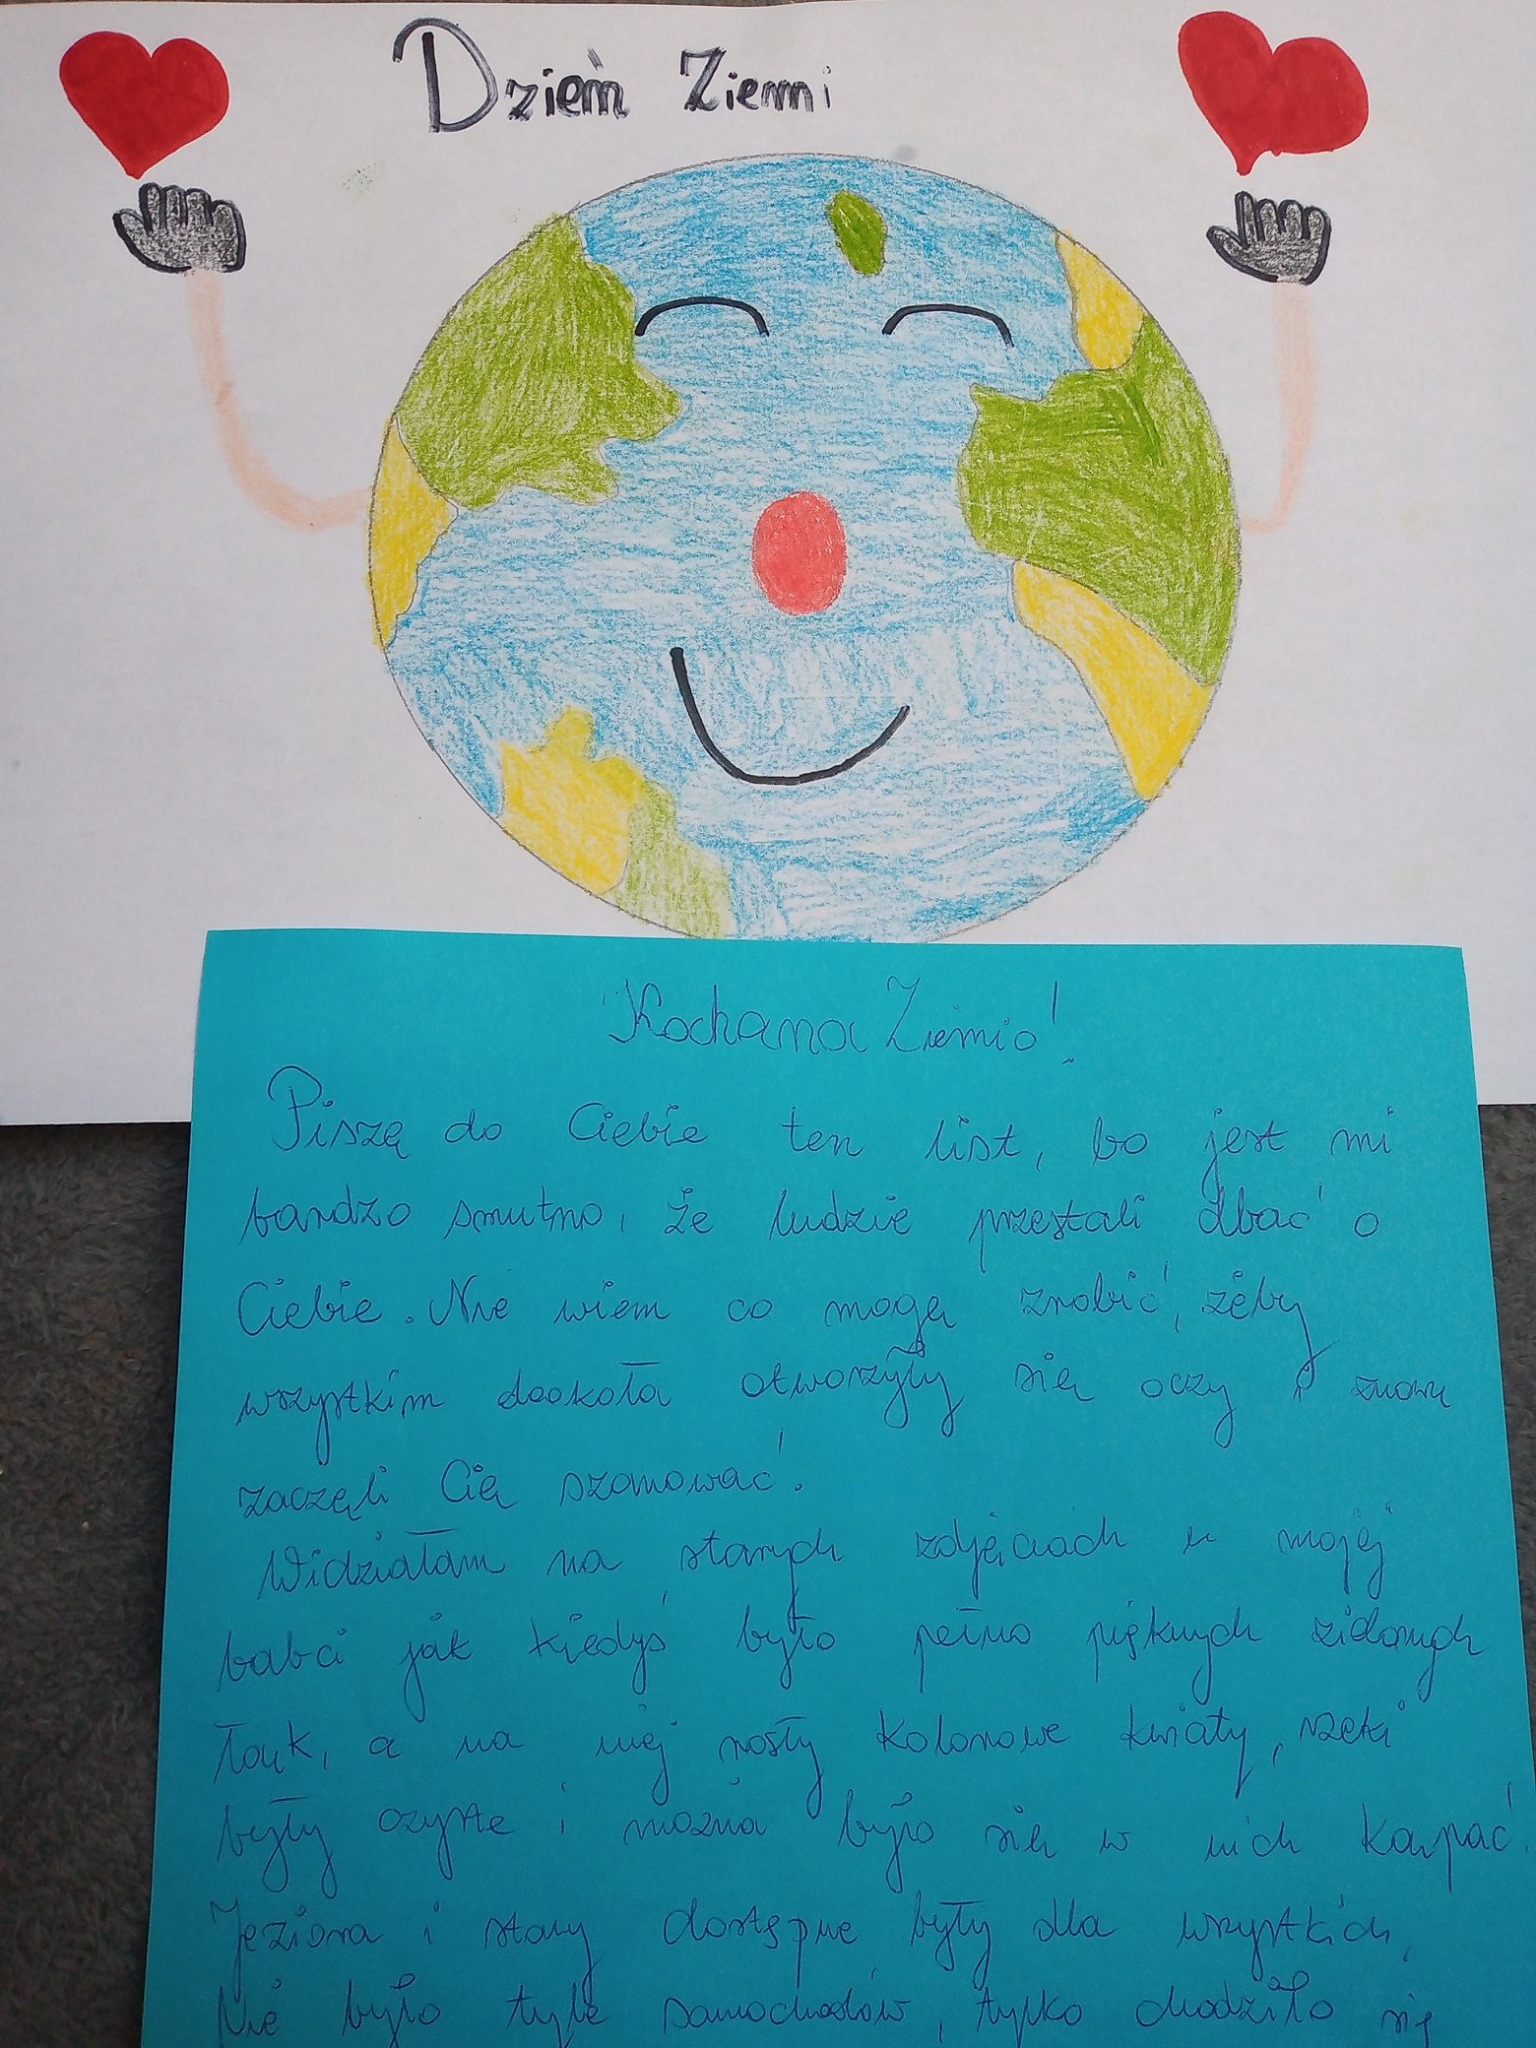 Dzień Ziemi
Kochana Ziemio!
Piszę do Ciebie ten list, bo jest mi
bardzo smutno, że ludzie przestali dbać o
Ciebie. Nie wiem co mogę zrobić, żeby
wszystkim dookoła otworzyły się oczy i znowu
zaczęli Cię szanować.
Widziałam na starych zdjęciach u mojej
babci jak kiedyś było pełno pięknych zielonych
łąk, a na niej rosły kolorowe kwiaty, rzeki
były czyste i można było się w nich kąpać.
Jeziora i stawy dostępne były dla wszystkich.
Nie było tyle samochodów, tylko chodziło się